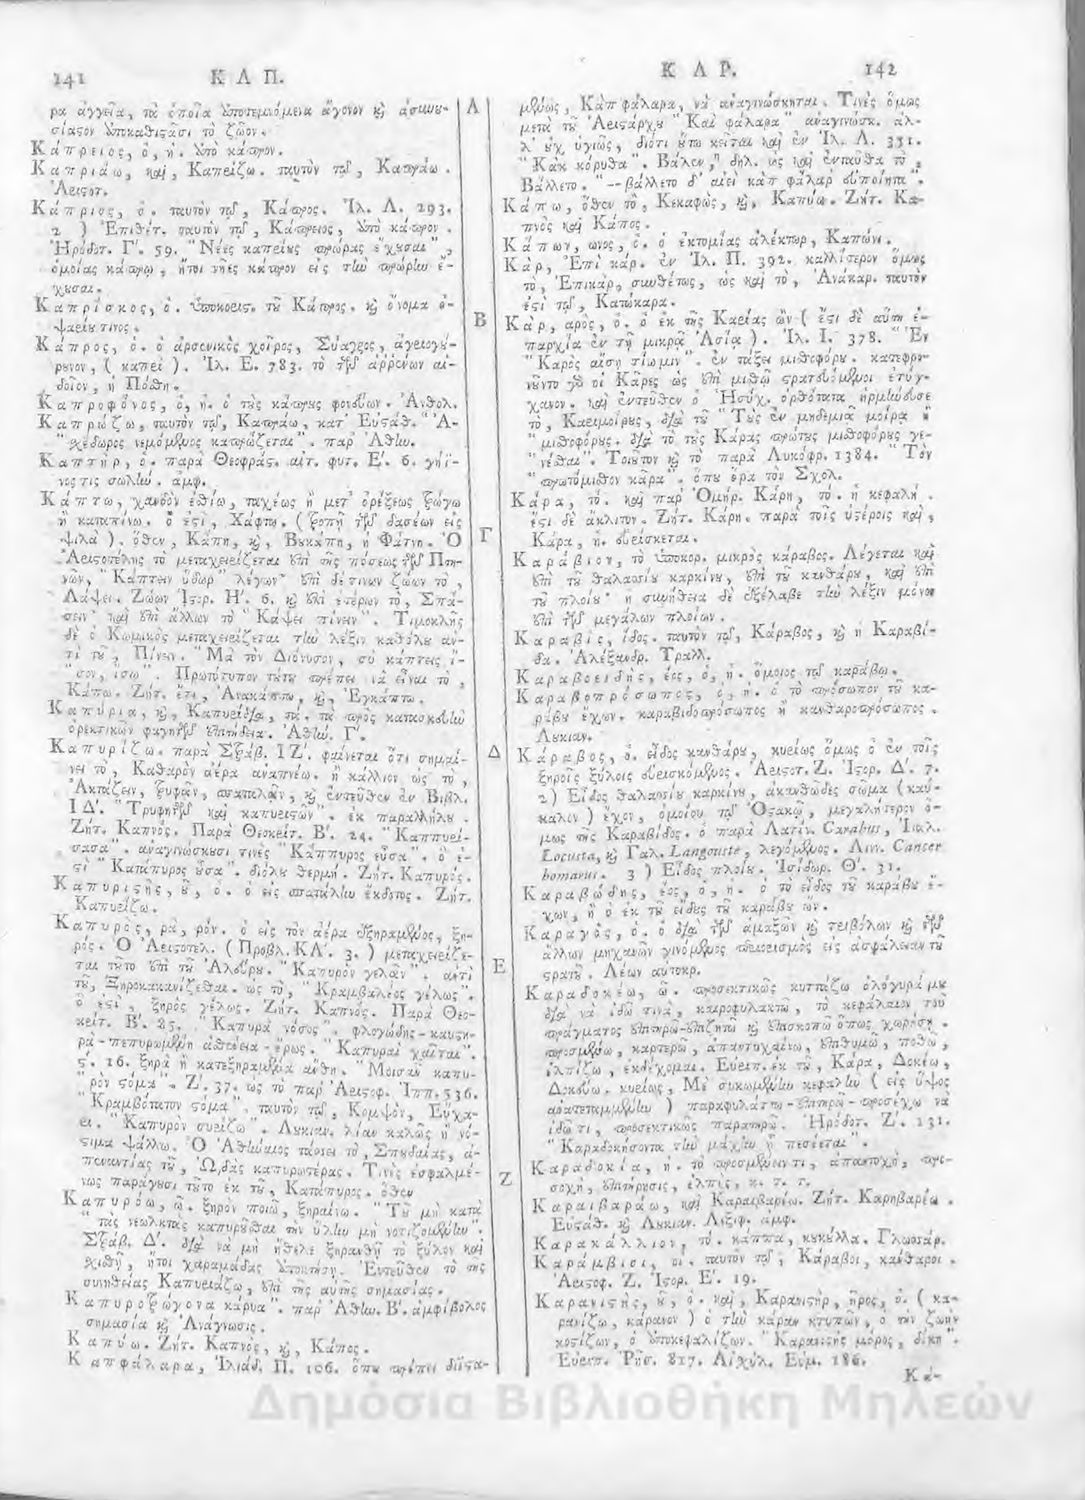 141 ΚΑΠ.
ρα ἀγγεῖα, τὰ ὁποῖα ὑποτεμνόμενα ἄγονον καὶ ἀσυνου-
σίαστον ὑποκαθιστᾶσι τὸ ζῶον.
Κάπρειος, ὁ, ἡ. ὑπὸ κάπρον.
Καπριάω, καὶ, Καπρίζω. ταυτὸν τῷ, Καπράω.
Ἀριστοτ.
Κάπριος, ὁ. ταυτὸν τῷ, Κάπρος. Ἰλ. Λ. 293.
2 ) Ἐπιθέτ. ταυτὸν τῷ, Κάπρειος, ὑπὸ κάπρον.
Ἡρόδοτ. Γ'. 59. "Νέες καπρίους πρώρας ἔχουσαι",
ὁμοίας κάπρῳ, ἤτοι νῆες κάπρον εἰς τὴν πρώρην ἔ-
χουσαι.
Καπρίσκος, ὁ. ὑποκορις. τοῦ Κάπρος. καὶ ὄνομα ὀ-
ψαρίου τινος.
Κάπρος, ὁ. ὁ ἀρσενικὸς χοῖρος, Σύαγρος, ἀγριογού-
ρουνον, ( καπρὶ ). Ἰλ. Ε. 783. τὸ τῶν ἀῤῥένων αἰ-
δοῖον, ἡ Πόσθη.
Καπροφόνος, ὁ, ἡ. ὁ τοὺς κάπρους φονεύων. Ἀνθολ.
Καπρώζω, ταυτὸν τῷ, Καπράω, κατ' Εὐστάθ. "Ἀ-
"χέδωρος νεμόμενος καπρώζεται". παρ' Ἀθην.
Καπτὴρ, ὁ. παρὰ Θεοφράστ. αἰτ. φυτ. Ε'. 6. γήϊ-
νος τις σωλὴν. ἀμφ.
Κάπτω, χανδὸν ἐσθίω, ταχέως ἢ μετ' ὀρέξεως τρώγω
ἢ καταπίνω. ὃ ἐστι, Χάφτω. ( τροπῇ τῶν δασέων εἰς
ψιλὰ ). ὅθεν, Κάπη, καὶ, Βουκάπη, ἡ Φάτνη. Ὁ
Ἀριστοτέλης τὸ μεταχειρίζεται ἐπὶ τῆς πόσεως τῶν Πτη-
νῶν, "Κάπτειν ὕδωρ" λέγων· ἐπὶ δέ τινων ζώων τὸ,
Λάψει. Ζώων Ἱστορ. Η'. 6. καὶ ἐπὶ ἑτέρων τὸ, Σπά-
σει· καὶ ἐπὶ ἄλλων τὸ "Κάψει πίνειν". Τιμοκλῆς
δὲ ὁ Κωμικὸς μεταχειρίζεται τὴν λέξιν καθόλου ἀν-
τὶ τοῦ, Πίνειν. "Μὰ τὸν Διόνυσον, σὺ κάπτεις ἴ-
"σον, ἴσῳ". Πρωτότυπον τούτου πρέπει νὰ εἶναι τὸ,
Κάπω. Ζήτ. ἔτι, Ἀνακάπτω, καὶ, Ἐγκάπτω.
Καπύρια, καὶ, Καπυρίδια, τα. τὰ πρὸς κατασκευὴν
ὀρεκτικῶν φαγητῶν ἐπιτήδεια. Ἀθην. Γ'.
Καπυρίζω. παρὰ Στράβ. ΙΖ'. φαίνεται ὅτι σημαί-
νει τὸ, Καθαρὸν ἀέρα ἀναπνέω. ἢ κάλλιον ὡς τὸ,
Ἀκτάζειν, τρυφᾶν, σπαταλᾶν, καὶ ἐντεῦθεν ἐν Βιβλ.
ΙΔ'. "Τρυφητῶν καὶ καπυριστῶν". ἐκ παραλλήλου.
Ζήτ. Καπνός. Παρὰ Θεοκρίτ. Β'. 24. "Καππυρί-
σασα". ἀναγινώσκουσι τινὲς "Κάππυρος εὖσα". ὅ ἐ-
στὶ "Κατάπυρος οὖσα". διόλου θερμή. Ζήτ. Καπυρός.
Καπυριστὴς, οῦ, ὁ. ὁ εἰς σπατάλην ἔκδοτος. Ζήτ.
Καπυρίζω.
Καπυρὸς, ρὰ, ρόν. ὁ εἰς τὸν ἀέρα ἐξηραμμένος, ξη-
ρός. Ὁ Ἀριστοτελ. ( Προβλ. ΚΑ'. 3. ) μεταχειρίζε-
ται τοῦτο ἐπὶ τοῦ Ἀλεύρου. "Καπυρὸν γελᾶν". ἀντὶ
τοῦ, Ξηροκακανίζεσθαι. ὡς τὸ, "Κραμβαλέος γέλως".
ὅ ἐστὶ, ξηρὸς γέλως. Ζήτ. Καπνός. Παρὰ Θεο-
κρίτ. Β'. 85. "Καπυρὰ νόσος". φλογώδης-καυστη-
ρά-πεπυρωμένη ἀσθένεια-ἔρως. "Καπυραὶ χαῖται".
ς'. 16. ξηρὰ ἢ κατεξηραμμένα ἄνθη. "Μοισᾶν καπυ-
"ρὸν στόμα". Ζ. 37. ὡς τὸ παρ' Ἀριστοφ. Ἱππ. 536.
"Κραμβότατον στόμα". ταυτὸν τῷ, Κομψὸν, Εὔχα-
ρι. "Καπυρὸν συρίζω". Λουκιαν. λίαν καλῶς ἢ νό-
στιμα ψάλλω. Ὁ Ἀθήναιος παίρει τὸ, Σπουδαίας, ἀ-
πεναντίας τοῦ, Ὠδὰς καπυρωτέρας. Τινὲς ἐσφαλμέ-
νως παράγουσι τοῦτο ἐκ τοῦ, Κατάπυρος. ὅθεν
Καπυρόω, ῶ. ξηρὸν ποιῶ, ξηραίνω. "Τοῦ μὴ κατὰ
"τὰς νεωλκίας καπυροῦσθαι τὴν ὕλην μὴ νοτιζομένην".
Στράβ. Δ'. διὰ νὰ μὴ ἤθελε ξηρανθῇ τὸ ξύλον καὶ
σχισθῇ, ἤτοι χαραμάδας ἀποκτήσῃ. Ἐντεῦθεν τὸ τῆς
συνηθείας Καπυριάζω, ἐπὶ τῆς αὐτῆς σημασίας.
Καπυροτρώγονα κάρυα". παρ' Ἀθην. Β'. ἀμφίβολος
σημασία καὶ Ἀνάγνωσις.
Καπύω. Ζήτ. Καπνὸς, καὶ, Κάπος.
Καπφάλαρα, Ἰλιάδ. Π. 106. ὅπου πρέπει διῃρη-
Α
Β
Γ
Δ
Ε
Ζ
ΚΑΡ. 142
μένως, Κὰπ φάλαρα, νὰ ἀναγινώσκηται. Τινὲς ὅμως
μετὰ τοῦ Ἀριστάρχου "Καὶ φάλαρα" ἀναγινώσκ. ἀλ-
λ' οὐχ ὑγιῶς, διότι οὕτω κεῖται καὶ ἐν Ἰλ. Λ. 351.
"Κὰκ κόρυθα". Βάλεν, δηλ. ὡς καὶ ἐνταῦθα τὸ,
Βάλλετο. "--βάλλετο δ' αἰεὶ κὰπ φάλαρ' εὐποίητα".
Κάπω, ὅθεν τὸ, Κεκαφὼς, καὶ, Καπύω. Ζήτ. Κα-
πνὸς καὶ Κάπος.
Κάπων, ωνος, ὁ. ὁ ἐκτομίας ἀλέκτωρ, Καπώνι.
Κὰρ, Ἐπὶ κάρ. ἐν Ἰλ. Π. 392. καλλίτερον ὅμως
τὸ, Ἐπικὰρ, συνθέτως, ὡς καὶ τὸ, Ἀνάκαρ. ταυτὸν
ἐστὶ τῷ, Κατώκαρα.
Κὰρ, αρὸς, ὁ. ὁ ἐκ τῆς Καρίας ὢν ( ἔστι δὲ αὕτη ἐ-
παρχία ἐν τῇ μικρᾷ Ἀσίᾳ ). Ἰλ. Ι. 378. "Ἐν
"Καρὸς αἴσῃ τίω μιν". ἐν τάξει μισθοφόρου. κατεφρο-
νοῦντο γὰρ οἱ Κᾶρες ὡς ἐπὶ μισθῷ στρατευόμενοι ἐτύγ-
χανον. καὶ ἐντεῦθεν ὁ Ἡσύχ. ὀρθότατα ἡρμήνευσε
τὸ, Καριμοίρους, διὰ τοῦ "Τοὺς ἐν μηδεμιᾷ μοίρᾳ ἢ
"μισθοφόρους. διὰ τὸ τοὺς Κάρας πρώτους μισθοφόρους γε-
"νέσθαι". Τοιοῦτον καὶ τὸ παρὰ Λυκόφρ. 1384. "Τὸν
"πρωτόμισθον κάρα". ὅπου ὅρα τὸν Σχολ.
Κάρα, τό. καὶ παρ' Ὁμήρ. Κάρη, τό. ἡ κεφαλή.
ἔστι δὲ ἄκλιτον. Ζήτ. Κάρη. παρὰ τοῖς ὑστέροις καὶ,
Κάρα, ἡ. εὑρίσκεται.
Καράβιον, τὸ ὑποκορ. μικρὸς κάραβος. Λέγεται καὶ
ἐπὶ τοῦ θαλασσίου καρκίνου, ἐπὶ τοῦ κανθάρου, καὶ ἐπὶ
τοῦ πλοίου· ἡ συνήθεια δὲ ἐξέλαβε τὴν λέξιν μόνον
ἐπὶ τῶν μεγάλων πλοίων.
Καραβὶς, ίδος. ταυτὸν τῷ, Κάραβος, καὶ ἡ Καραβί-
δα. Ἀλέξανδρ. Τραλλ.
Καραβοειδὴς, έος, ὁ, ἡ. ὅμοιος τῷ καράβῳ.
Καραβοπρόσωπος, ὁ, ἡ. ὁ τὸ πρόσωπον τοῦ κα-
ράβου ἔχων. καραβιδοπρόσωπος ἢ κανθαροπρόσωπος.
Λουκιαν.
Κάραβος, ὁ. εἶδος κανθάρου, κυρίως ὅμως ὁ ἐν τοῖς
ξηροῖς ξύλοις εὑρισκόμενος. Ἀριστοτ. Ζ. Ἱστορ. Δ'. 7.
2) Εἶδος θαλασσίου καρκίνου, ἀκανθῶδες σῶμα (καύ-
καλον ) ἔχον, ὁμοίου τῷ Ὀστακῷ, μεγαλήτερον ὅ-
μως τῆς Καραβίδος. ὁ παρὰ Λατίν. Carabus, Ἰταλ.
Locusta, καὶ Γαλ. Langouste, λεγόμενος. Λινν. Cancer
homarus. 3 ) Εἶδος πλοίου. Ἰσίδωρ. Θ'. 31.
Καραβώδης, έος, ὁ, ἡ. ὁ τὸ εἶδος τοῦ καράβου ἔ-
χων, ἢ ὁ ἐκ τοῦ εἴδους τοῦ καράβου ὤν.
Καραγὸς, ὁ. ὁ διὰ τῶν ἁμαξῶν καὶ τριβόλων καὶ τῶν
ἄλλων μηχανῶν γινόμενος περιορισμὸς εἰς ἀσφάλειαν τοῦ
στρατοῦ. Λέων αὐτοκρ.
Καραδοκέω, ῶ. προσεκτικῶς κυττάζω ὁλόγυρά μου
διὰ νὰ ἰδῶ τινὰ, καιροφυλακτῶ, τὸ κεφάλαιον τοῦ
πράγματος ἐπιτηρῶ-ἐπιζητῶ καὶ ἐπισκοπῶ ὅπως χωρήσῃ.
προσμένω, καρτερῶ, ἀπαντυχαίνω, ἐπιθυμῶ, ποθῶ,
ἐλπίζω, ἐκδέχομαι. Εὐριπ. ἐκ τοῦ, Κάρα, Δοκέω,
Δοκεύω. κυρίως, Μὲ σηκωμένην κεφαλὴν ( εἰς ὕψος
ἀνατεταμμένην ) παραφυλάττω-ἐπιτηρῶ-προσέχω νὰ
ἰδῶ τι, προσεκτικῶς παρατηρῶ. Ἡρόδοτ. Ζ. 131.
"Καραδοκήσοντα τὴν μάχην ᾗ πεσέεται".
Καραδοκία, ἡ. τὸ προσμένειν τι, ἀπαντοχὴ, προ-
σοχὴ, ἐπιτήρησις, ἐλπὶς, κ. τ. τ.
Καραιβαράω, καὶ Καραιβαρέω. Ζήτ. Καρηβαρέω.
Εὐστάθ. καὶ Λουκιαν. Λεξιφ. ἀμφ.
Καρακάλλιον, τό. κάππα, κουκούλλα. Γλωσσάρ.
Καράμβιοι, οἱ. ταυτὸν τῷ, Κάραβοι, κάνθαροι.
Ἀριστοφ. Ζ. Ἱστορ. Ε'. 19.
Καρανιστὴς, οῦ, ὁ. καὶ, Καρανιστὴρ, ῆρος, ὁ. ( κα-
ρανίζω, κάρανον ) ὁ τὴν κάραν κτυπῶν, ὁ τὴν ζωὴν
κοστίζων, ὁ ἀποκεφαλίζων. "Καρανιστὴς μόρος, δίκη".
Εὐριπ. Ῥῆσ. 817. Αἰχύλ. Εὐμ. 186.
Κα-
Δημόσια Βιβλιοθήκη Μηλεών